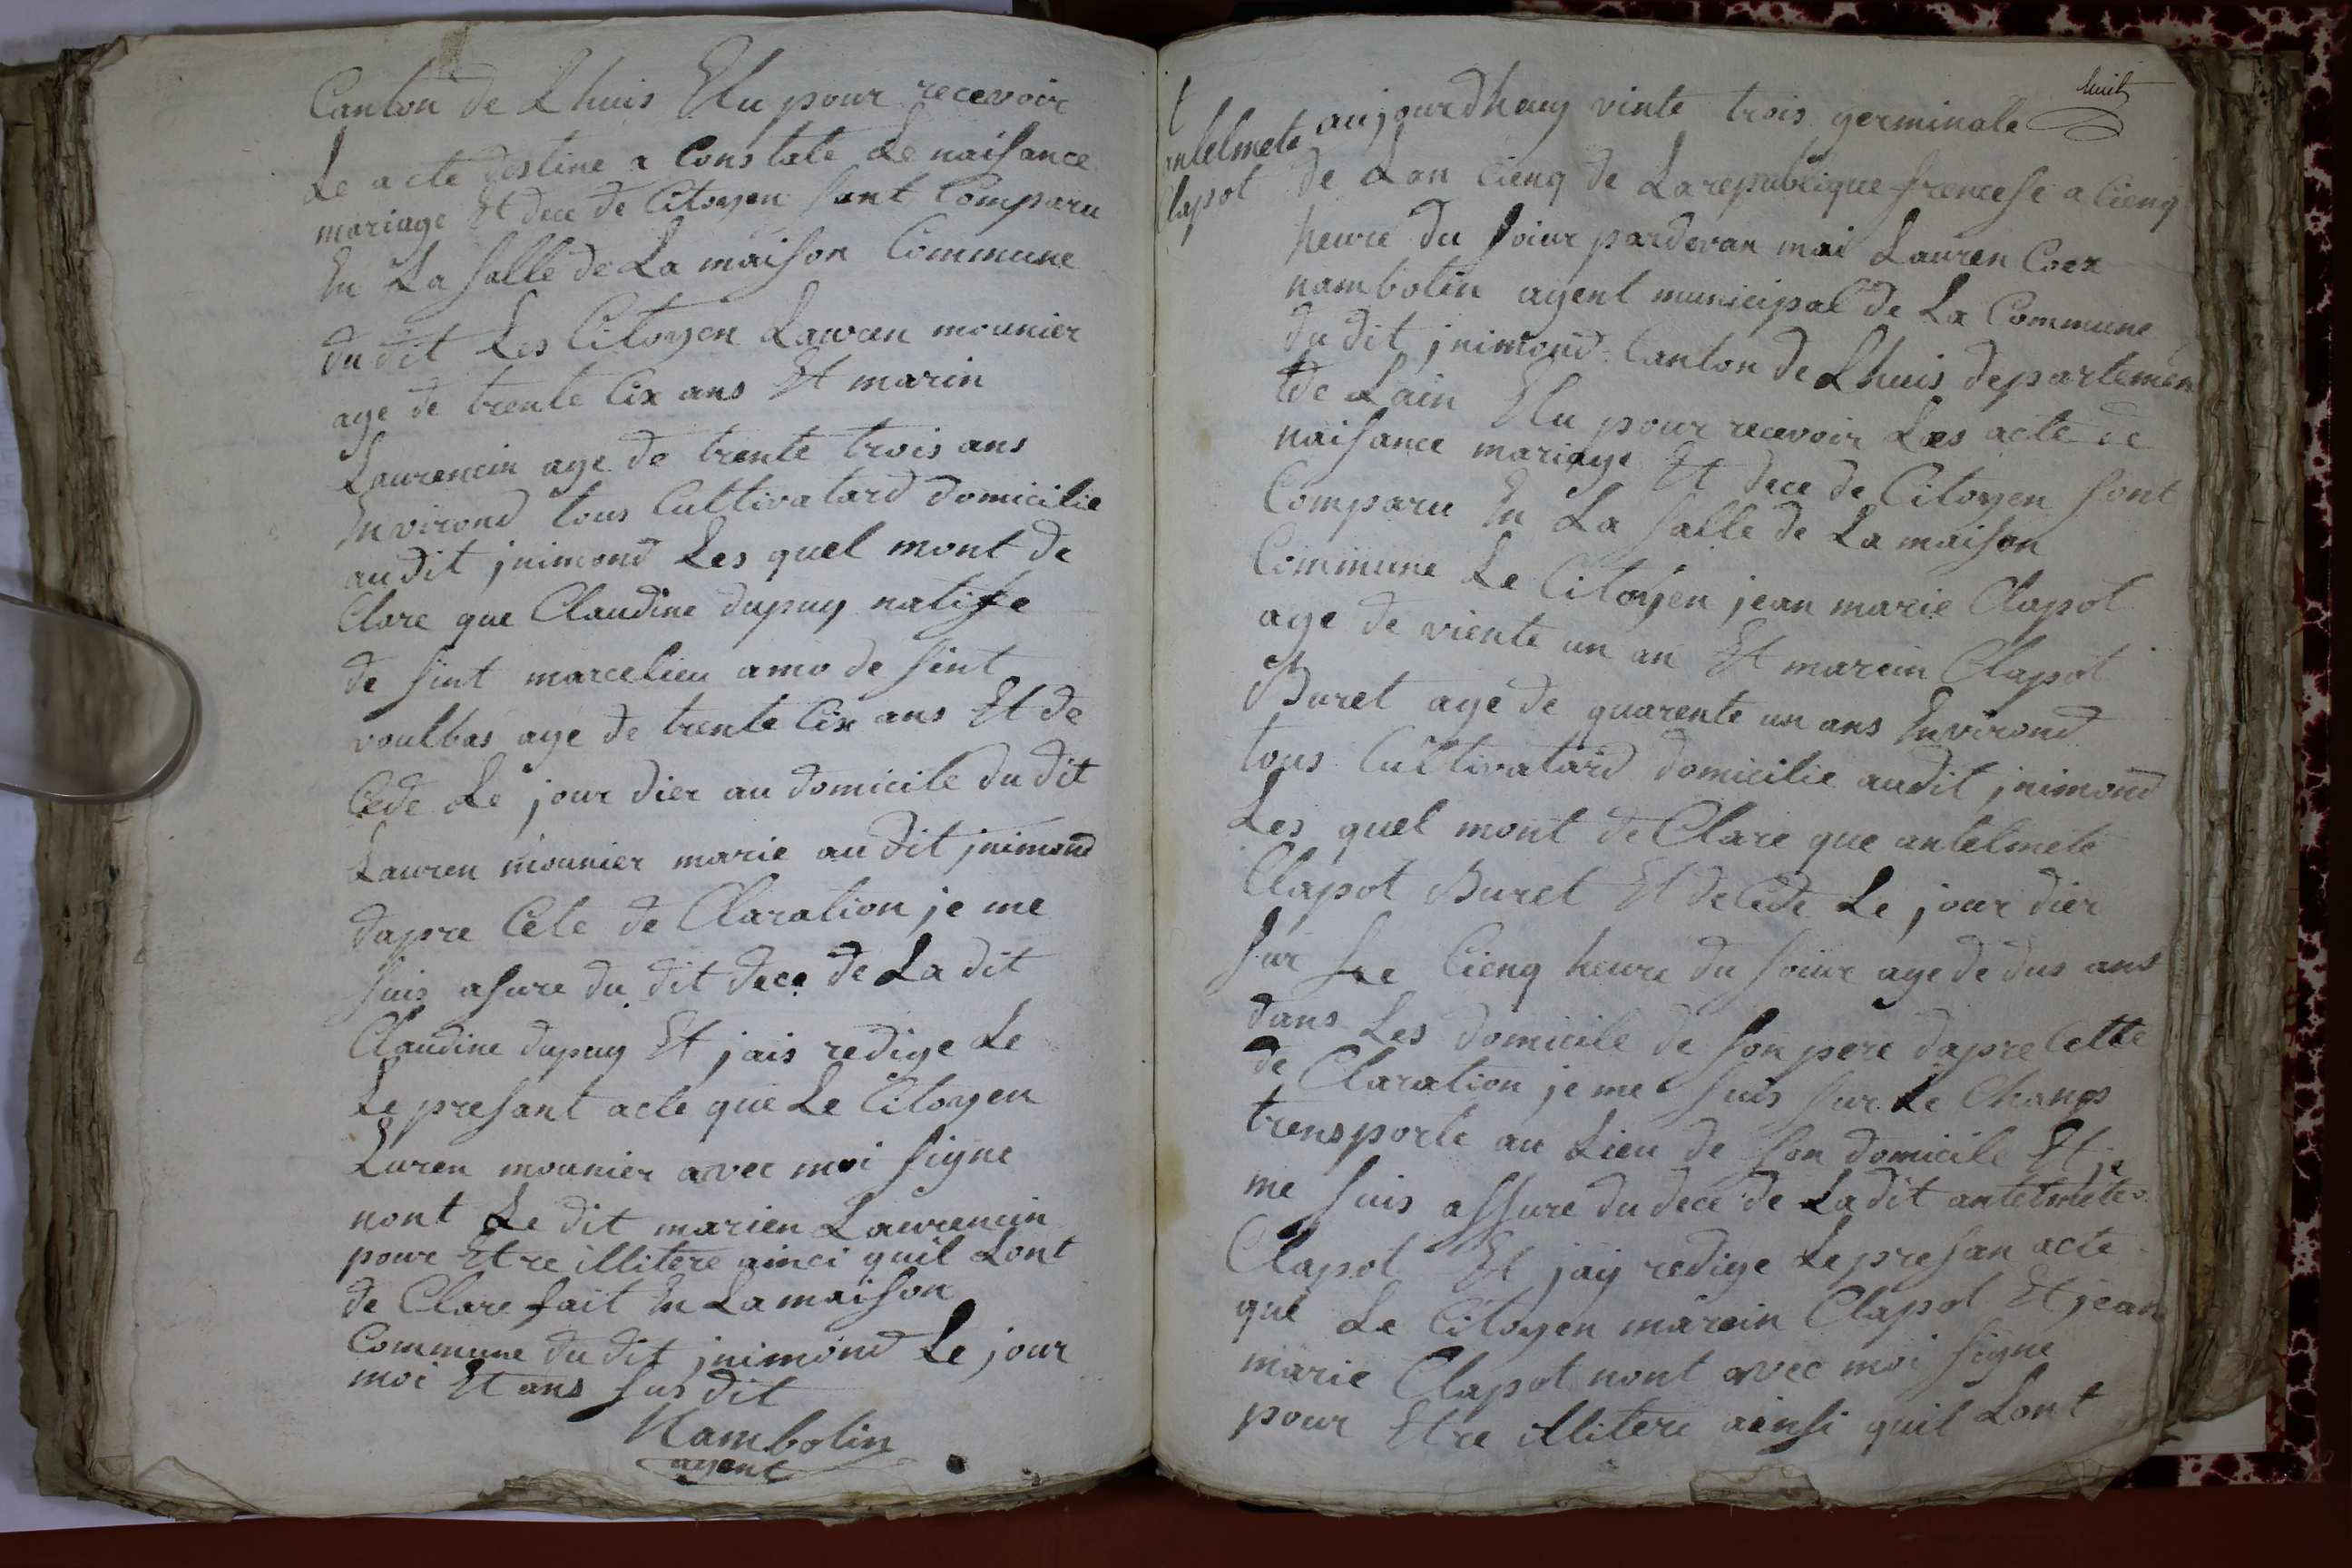 Canton de Lhuis Elu pour recevoir
Le acte destine a Constate Le naisance
mariage Et dece de Citoyen sont Comparu
En La salle de La maison Commune
du dit Les Citoyen Lauren mounier
age de trente Cix ans Et marin
Laurencin age de trente trois ans
Environd tous Cultivatard domicilie
audit jnimond Les quel mont de
Clare que Claudine dupuy natife
de sint marcelieu amo de sint
voulbas age de trente Cix ans Et de
Cede Le jour dier au domicile du dit
Lauren mounier marie au dit jnimond
dapre Cete de Claration je me
suis asure du dit dece de La dit
Claudine dupuy Et jais redige Le
Le presant acte que Le Citoyen
Luren mounier avec moi signe
nont Le dit marien Laurencin
pour Etre illitere ainci quil Lont
de Clare fait En La maison
Commune du dit jnimond Le jour
moi Et ans sus dit
Nambotin
agent
huit
t
antelmete
Clapot
aujourdheuy vinte trois germinale
de Lan Cienq de La republique francese a Cienq
heure du soiur pardevan moi Lauren Coex
nambotin agent municipal de La Commune
du dit jnimond Canton de Lhuis departemen
tde Lain Elu pour recevoir Les acte de
naisance mariage Et dece de Citoyen sont
Comparu En La salle de La maison
Commune Le Citoyen jean marie Clapot
age de viente un an Et marcin Clapot
Buret age de quarente un ans Environd
tous Cultivatard domicilie audit jnimond
Les quel mont de Clare que antelmete
Clapot Buret Et de Cede Le jour dier
sur Le Cienq heure du soiur age de dus ans
dans Les domicile de son pere dapre Cette
de Claration je me suis sur Le Changs
transporte au Lieu de son domicile Et je
me suis assure du dece de La dit antelmete
Clapot Et jay redige Le presan acte
que Le Citoyen marcin Clapot Et jean
marie Clapot nont avec moi signe
pour Etre illitere ainsi quil Lont